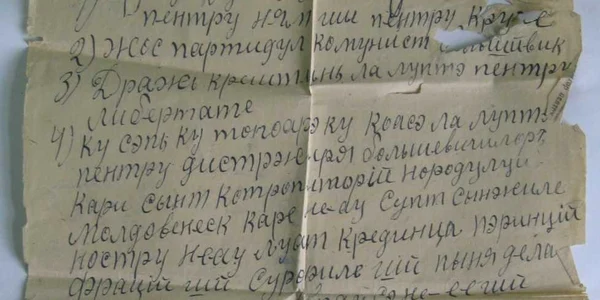 пентру ням ши пентру Круче
2) Жос партидул комунист
3) Дражь крештинь ла луптэ пентру
либертате
4) Ку сэпь ку топоарэ ку коасэ ла луптэ
пентру дистрэжиря большевичилоръ
Кари сынт Котропиторій нородулуй
Молдовенеск каре не-ау Супт сынжиле
ностру неау Луат Крединца пэринцій
фраций ший Сурориле ший пыня дела